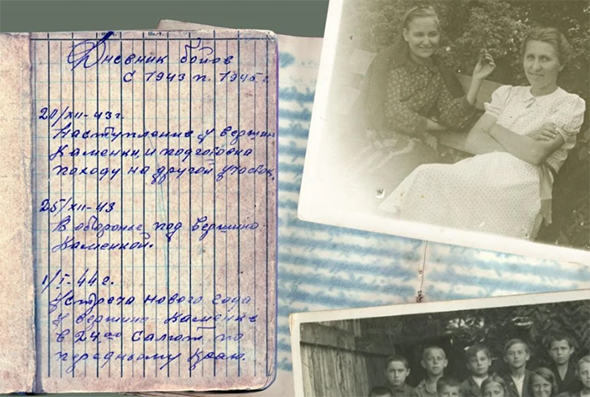 Дневник боёв
с 1943 п. 1945 г.
20/XII-43г.
Наступление у вершин
Каменки, и подготовка
походу на другой участок,
25/XII-43
В обороне под Вершино-
Каменкой.
1/I-44 г.
Встреча нового года
у вершино Каменке
в 24.00 Салют по
переднему краю.